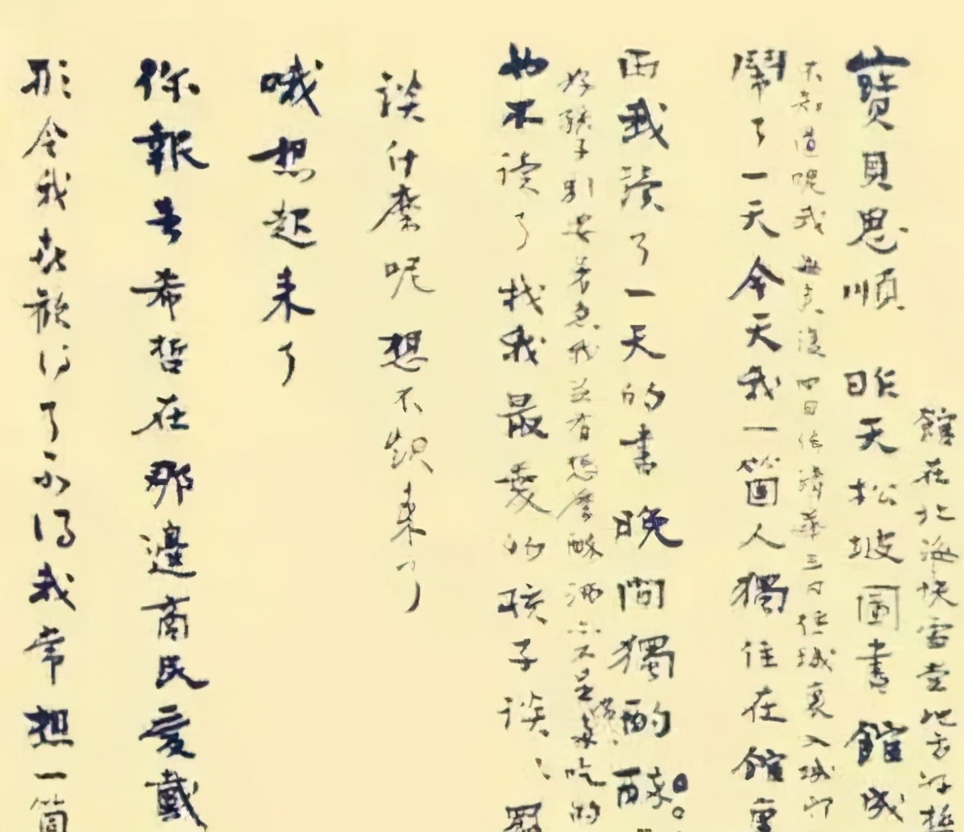 館在北海快雪堂地方好極
寶貝思順 昨天松坡圖書館成
不知道呢我每來復四日住清華三日住城裏入城即
鬧了一天今天我一箇人獨住在館裏
雨我讀了一天的書晚間獨酌醉
好孩子別要着急我並冇怎麼醉酒亦不是常多吃的
也不读了找我最愛的孩子談、罷
談什麼呢想不起來了
哦想起来了
你報告希哲在那邊商民愛戴
形令我喜歡得了不得我常想一箇